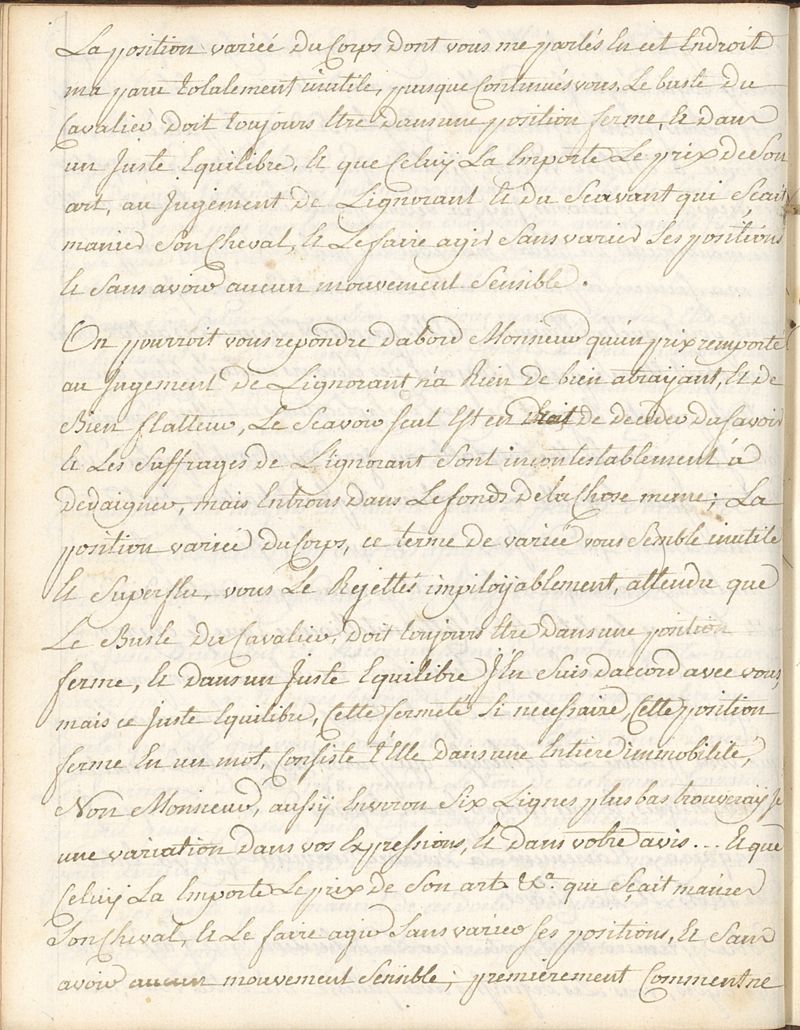 La position variée du Corps dont vous me parlés En cet Endroit
ma paru totalement inutile, puisque Continués vous, Le buste du
Cavalier doit toujours Etre dans une position ferme, Et dans
un Juste Equilibre, Et que Celuÿ La Emporte Le prix de Son
art, au Jugement de Lignorant Et du Scavant qui Scait
manier Son Cheval, Et Le faire agir Sans varier Ses positions
Et Sans avoir aucun mouvement Sensible.
On pourroit vous repondre dabord Monsieur quun prix remporté
au Jugement de Lignorant n'a Rien de bien atraÿant, Et de
Bien flatteur, Le Scavoir seul Est en droit de decider du savoir
Et Les Suffrages de Lignorant Sont incontestablement á
dedaigner, mais Entrons dans Le fonds de la Chose meme; La
position variée du Corps, ce terme de variée vous Semble inutile
Et Superflu, vous Le Rejettés impitoÿablement, attendu que
Le Buste du Cavalier, doit toujours Etre dans une position
ferme, Et dans un Juste Equilibre J'En Suis daccord avec vous,
mais ce Juste Equilibre, Cette fermeté Si necessaire, Cette position
ferme En un mot, Consiste t'Elle dans une Entiere immobilité,
Non Monsieur, aussÿ Environ Six Lignes plus bas trouveraÿ Je
une variation dans vos Expressions, Et dans votre avis... Et que
Celuÿ La Emporte Le prix de Son art &ca. que Sçait manier
Son Cheval, Et Le faire agir Sans varier ses positions, Et Sans
avoir aucun mouvement Sensible; premierement Comment ne